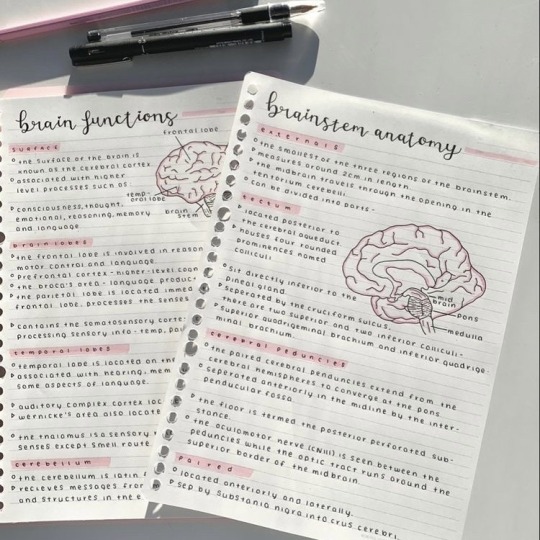 brain functions
frontal lobe
surface
the surface of the brain is
known as the cerebral cortex.
associated with higher
level processes such as
consciousness, thought,
emotional, reasoning, memory
and language.
temp-
oral lobe
brain
stem
brain lobes
the frontal lobe is involved in reason
motor control and language.
prefrontal cortex - higher-level cog
the broca's area - language produc
the parietal lobe is located immed
frontal lobe. processes the senses
contains the somatosensory corte
processing sensory info - temp, pai
temporal lobes
temporal lobe is located on the
associated with hearing, mem
some aspects of language.
auditory complex cortex loc
wernicke's area also locate
the thalamus is a sensory
senses except smell route
cerebellum
the cerebellum is latin f
recieves messages fro
and structures in the
brainstem anatomy
externals
the smallest of the three regions of the brainstem.
measures around 2cm in length.
the midbrain travels through the opening in the
tentorium cerebelli.
can be divided into parts-
tectum
located posterior to
the cerebral aqueduct.
houses four rounded
prominences named
colliculi.
sit directly inferior to the
pineal gland.
seperated by the cruciform sulcus.
there are two superior and two inferior colliculi-
superior quadrigeminal brachium and inferior quadrige-
minal brachium.
mid
brain
pons
medulla
cerebral peduncles
the paired cerebral penduncles extend from the
cerebral hemispheres to converge at the pons.
seperated anteriorly in the midline by the inter-
penducular fossa.
the floor is termed the posterior perforated sub-
stance.
the oculomotor nerve (CNIII) is seen between the
peduncles while the optic tract runs around the
superior border of the midbrain.
paired
located anteriorly and laterally.
sep by substania nigra into crus cerebri.